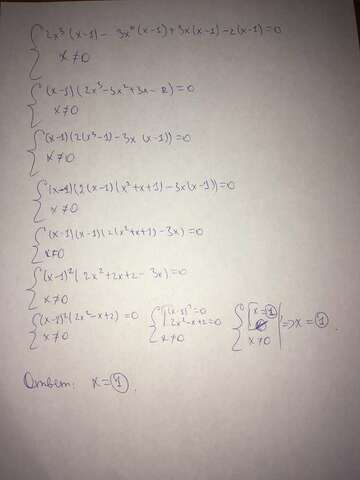 2x³(x-1) - 3x²(x-1) + 3x(x-1) - 2(x-1) = 0
x ≠ 0
(x-1)(2x³-3x²+3x-2) = 0
x ≠ 0
(x-1)(2(x³-1)-3x(x-1)) = 0
x ≠ 0
(x-1)(2(x-1)(x²+x+1)-3x(x-1)) = 0
x ≠ 0
(x-1)(x-1)(2(x²+x+1)-3x) = 0
x ≠ 0
(x-1)²(2x²+2x+2-3x) = 0
x ≠ 0
(x-1)²(2x²-x+2) = 0
x ≠ 0
(x-1)² = 0
2x²-x+2 = 0
x ≠ 0
x = 1
∅
x ≠ 0
=> x = 1.
Ответ: x = 1.